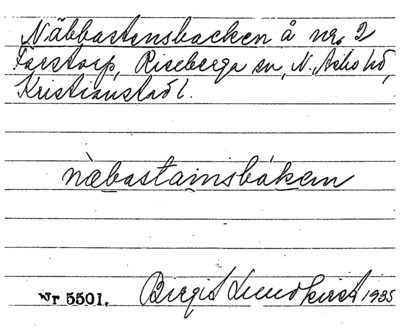 Näbbastensbacken å nr. 2
Färstorp, Riseberga sn, N. Åsbo hd,
Kristianstad l.
näbastainsbáken
Nr 5501. Birgit Lundkvist 1935